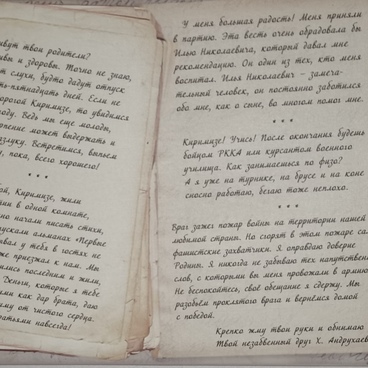 ивут твои родители?
вы и здоровы. Точно не знаю,
т слухи, будто дадут отпуск
ть-пятнадцать дней. Если не
орогой Киримизе, то увидимся
оду. Ведь мы еще молоды,
рпение может выдержать и
азлуку. Встретимся, выпьем
у, пока, всего хорошего!
* * *
ой, Киримизе, жили
ии в одной комнате,
но начали писать стихи,
ускали альманах «Первые
ывал у тебя в гостях не
же приезжал к нам. Мы
ились последним и жили,
. Деньги, которые я тебе
ими как дар брата, даю
ему от чистого сердца.
атьями навсегда!
У меня большая радость! Меня приняли
в партию. Эта весть очень обрадовала бы
Илью Николаевича, который давал мне
рекомендацию. Он один из тех, кто меня
воспитал. Илья Николаевич - замеча-
тельный человек, он постоянно заботился
обо мне, как о сыне, во многом помог мне.
* * *
Киримизе! Учись! После окончания будешь
бойцом РККА или курсантом военного
училища. Как занимаешься по физо?
А я уже на турнике, на брусе и на коне
сносно работаю, бегаю тоже неплохо.
* * *
Враг зажег пожар войны на территории нашей
любимой страны. Но сгорят в этом пожаре са
фашистские захватчики. Я оправдаю доверие
Родины. Я никогда не забываю тех напутствен
слов, с которыми вы меня провожали в армию
Не беспокойтесь, своё обещание я сдержу. Мы
разобьём проклятого врага и вернёмся домой
с победой.
Крепко жму твои руки и обнимаю
Твой незабвенный друг Х. Андрухаев